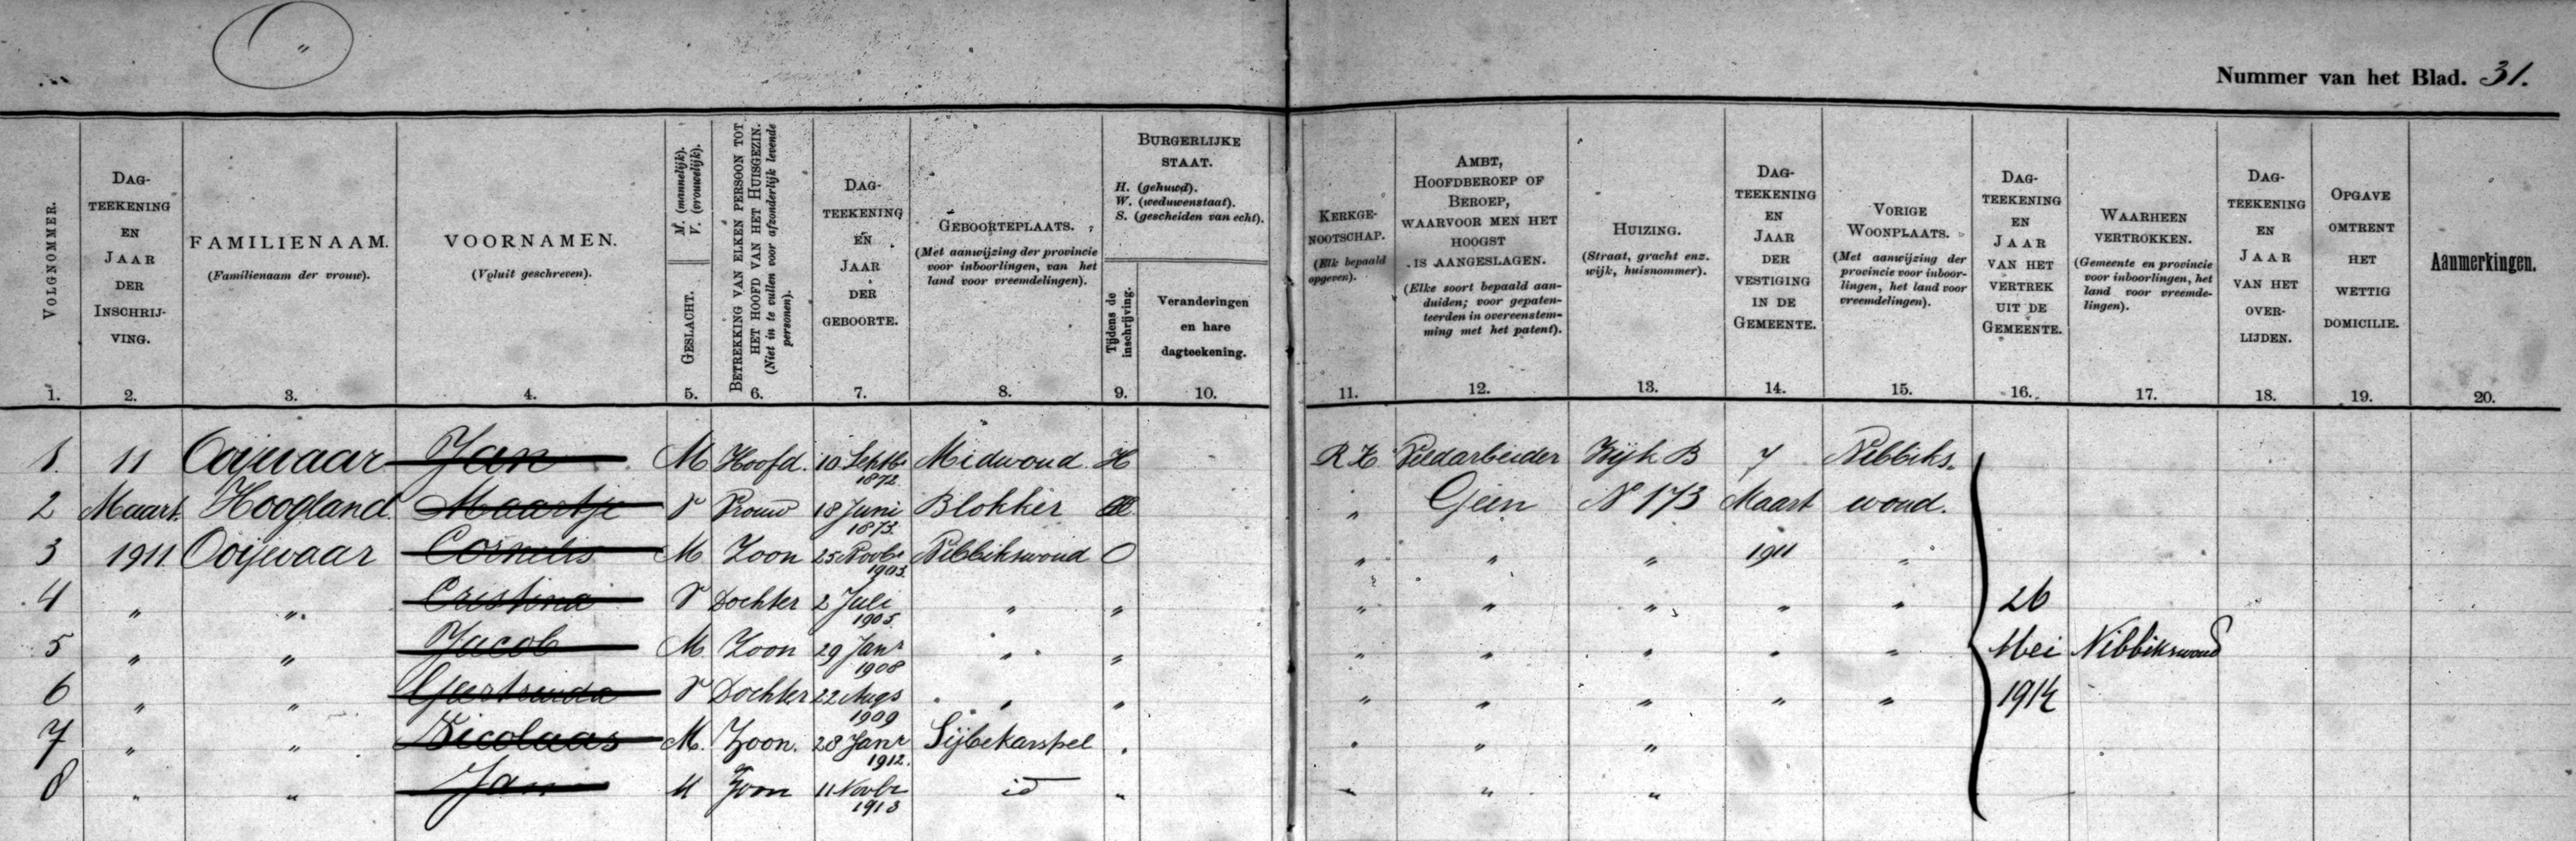 O "
Nummer van het Blad. 31.
VOLGNOMMER.
1.
DAG-
TEEKENING
EN
JAAR
DER
INSCHRIJ-
VING.
2.
FAMILIENAAM.
(Familienaam der vrouw).
3.
VOORNAMEN.
(Voluit geschreven).
4.
M. (mannelijk).
V. (vrouwelijk).
GESLACHT.
5.
BETREKKING VAN ELKEN PERSOON TOT
HET HOOFD VAN HET HUISGEZIN.
(Niet in te vullen voor afzonderlijk levende
personen).
6.
DAG-
TEEKENING
EN
JAAR
DER
GEBOORTE.
7.
GEBOORTEPLAATS.
(Met aanwijzing der provincie
voor inboorlingen, van het
land voor vreemdelingen).
8.
BURGERLIJKE
STAAT.
H. (gehuwd).
W. (weduwenstaat).
S. (gescheiden van echt).
Tijdens de
inschrijving.
9.
Veranderingen
en hare
dagteekening.
10.
KERKGE-
NOOTSCHAP.
(Elk bepaald
opgeven).
11.
AMBT,
HOOFDBEROEP OF
BEROEP,
WAARVOOR MEN HET
HOOGST
IS AANGESLAGEN.
(Elke soort bepaald aan-
duiden; voor gepaten-
teerden in overeenstem-
ming met het patent).
12.
HUIZING.
(Straat, gracht enz.
wijk, huisnommer).
13.
DAG-
TEEKENING
EN
JAAR
DER
VESTIGING
IN DE
GEMEENTE.
14.
VORIGE
WOONPLAATS.
(Met aanwijzing der
provincie voor inboor-
lingen, het land voor
vreemdelingen).
15.
DAG-
TEEKENING
EN
JAAR
VAN HET
VERTREK
UIT DE
GEMEENTE.
16.
WAARHEEN
VERTROKKEN.
(Gemeente en provincie
voor inboorlingen, het
land voor vreemde-
lingen).
17.
DAG-
TEEKENING
EN
JAAR
VAN HET
OVER-
LIJDEN.
18.
OPGAVE
OMTRENT
HET
WETTIG
DOMICILIE.
19.
Aanmerkingen.
20.
1. 11 Ooijevaar Jan M Hoofd. 10 Septbr 1872 Midwoud. H R K Veldarbeider Wijk B 7 Nibbiks-
2 Maart. Hoogland. Maartje V Vrouw 18 Juni 1873. Blokker " Geen N 173 Maart woud.
3 1911. Ooijevaar Cornelis M Zoon 25 Novbr 1903. Nibbikswoud O " " " 1911 "
4 " " Cristina V Dochter 2 Juli 1905. " " " " " " " 26
5 " " Jacob M. Zoon 29 Janr 1908 " " " " " " " Mei Nibbikswoud
6 " " Geertruida V Dochter 22 Augs 1909 " " " " " " " 1914
7 " " Nicolaas M. Zoon. 28 Janr 1912. Sijbekarspel " " " "
8 " " Jan M Zoon 11 Novbr 1913 id " " " "